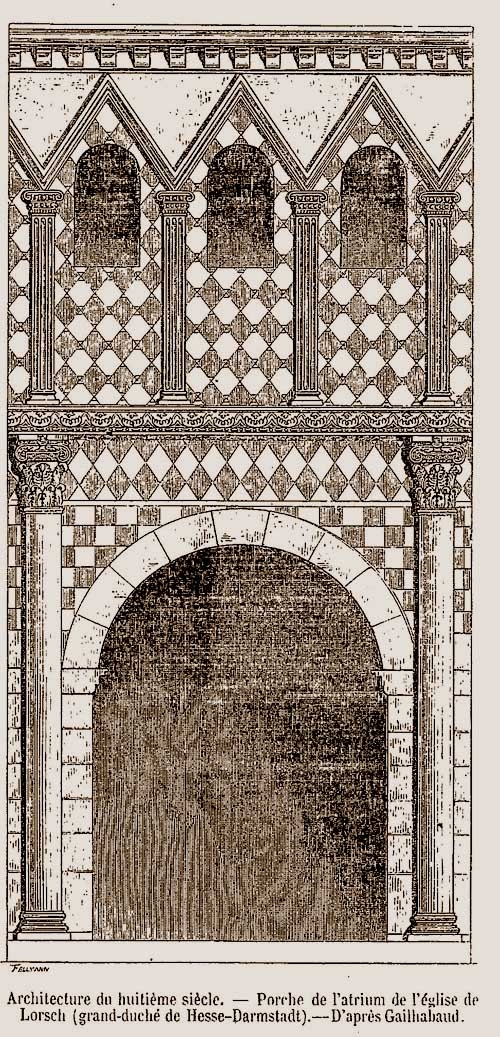 FELLMANN
Architecture du huitième siècle. — Porche de l'atrium de l'église de
Lorsch (grand-duché de Hesse-Darmstadt).—D'après Gailhabaud.